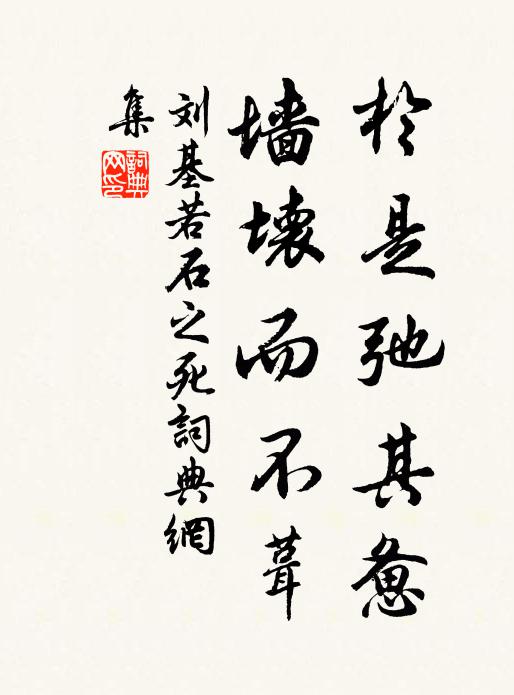 於是弛其惫
墙壞而不葺
刘基若石之死詞典網
集
詞典
网印